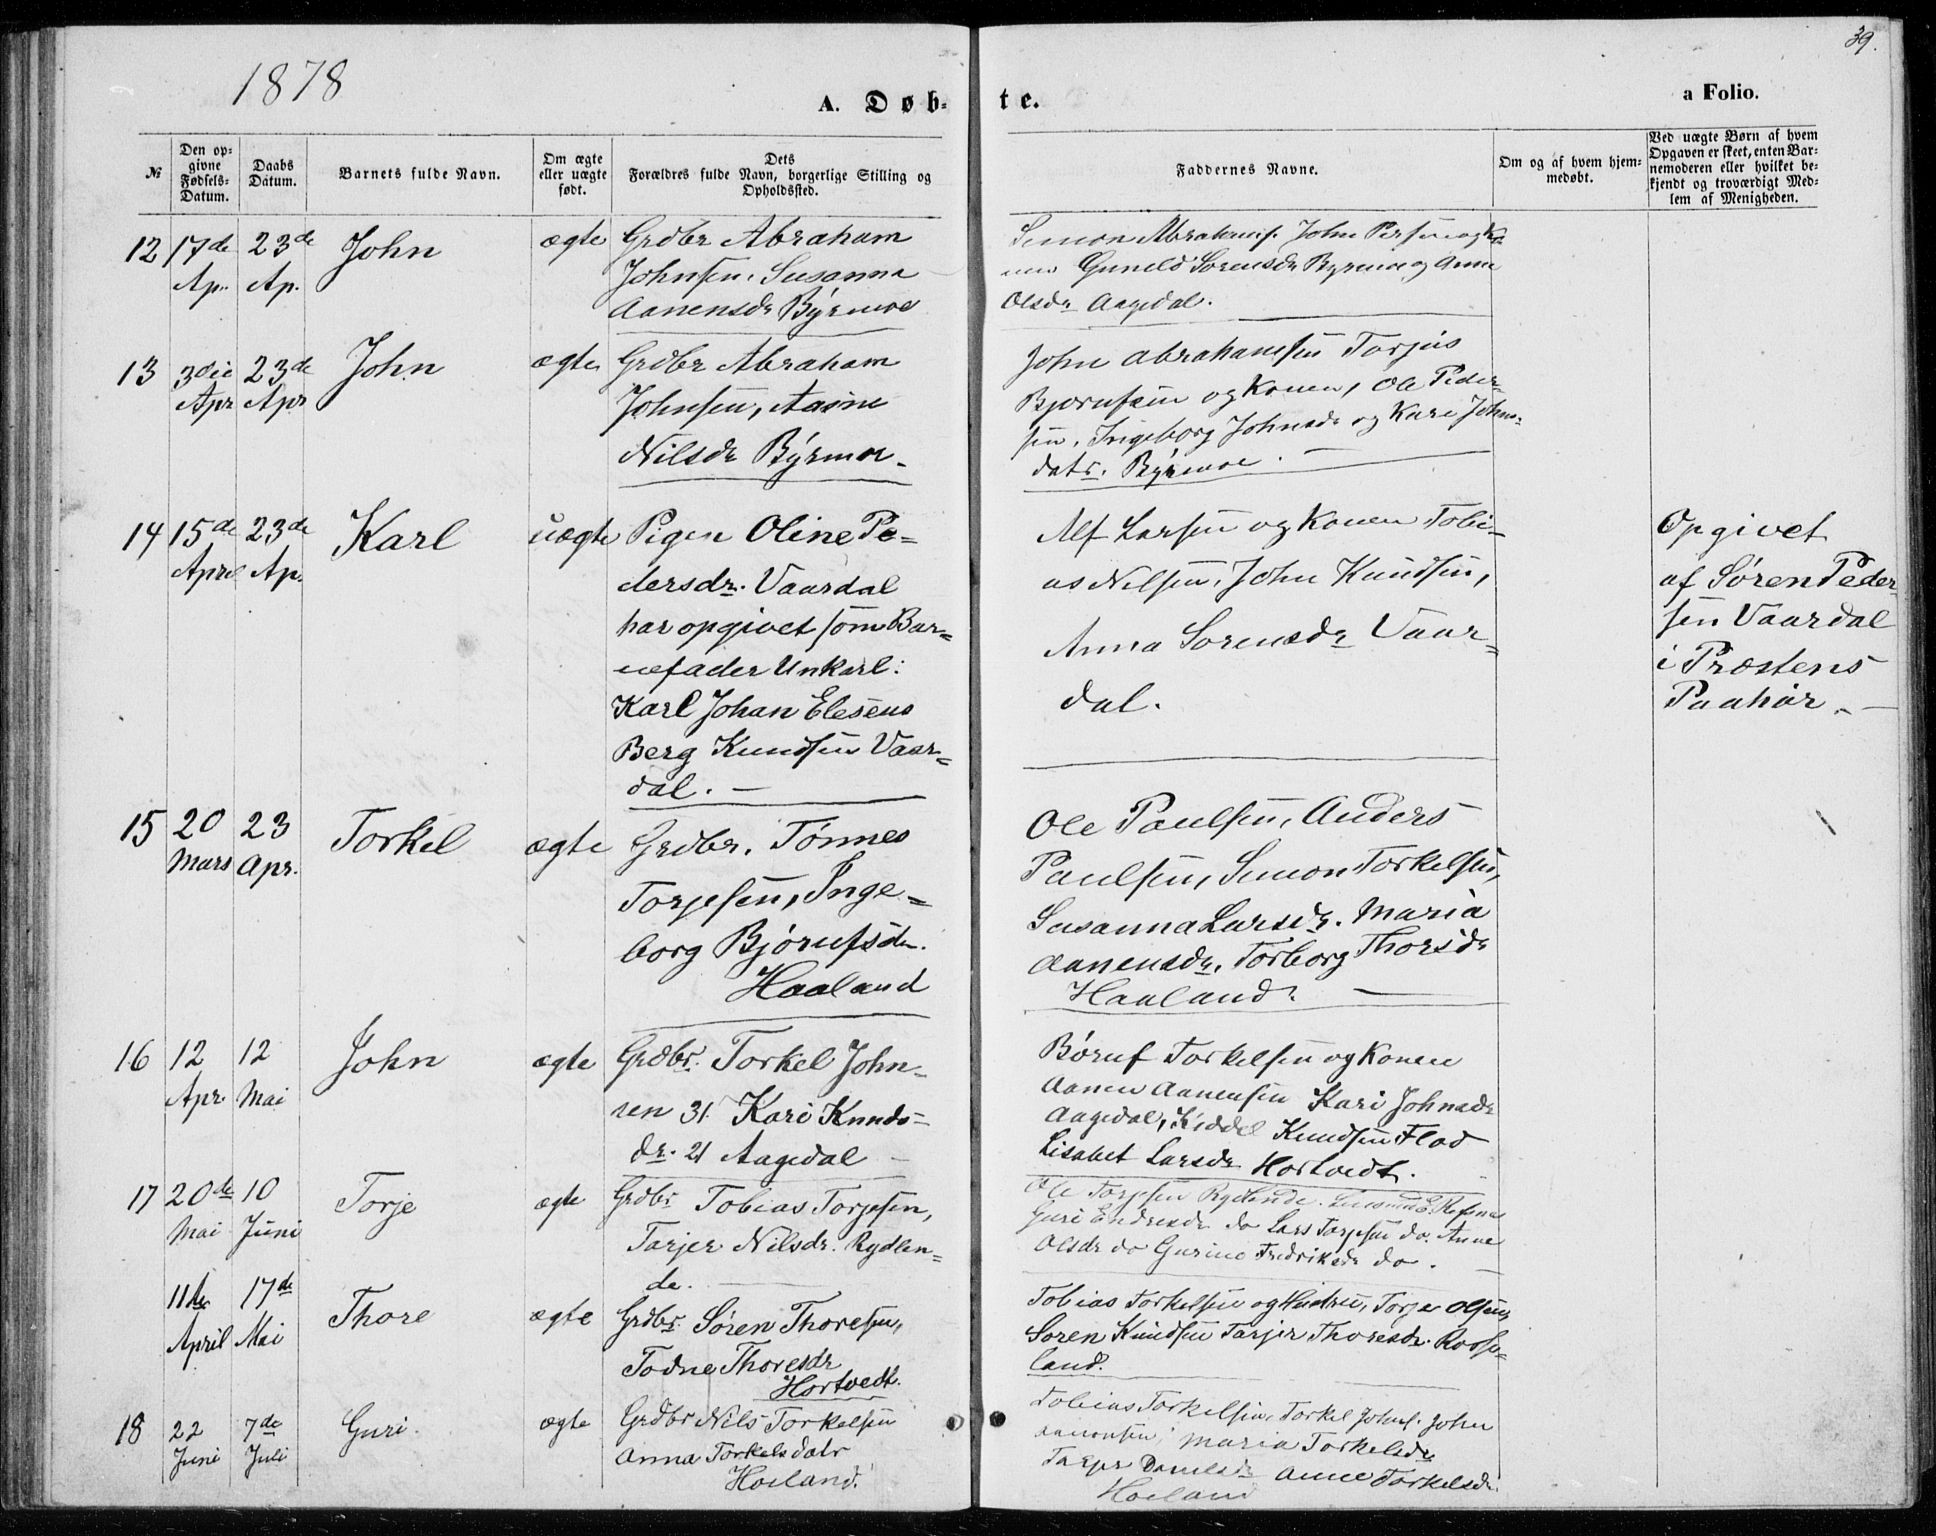 1878
39.
A. Døb-
te.
a Folio.
№
Den op-
givne
Fødsels-
Datum.
Daabs
Datum.
Barnets fulde Navn.
Om ægte
eller uægte
født.
Dets
Forældres fulde Navn, borgerlige Stilling og
Opholdssted.
Faddernes Navne.
Om og af hvem hjem-
medøbt.
Ved uægte Børn af hvem
Opgaven er skeet, enten Bar-
nemoderen eller hvilket be-
kjendt og troværdigt Med-
lem af Menigheden.
12 17de 23de John ægte Grdbr Abraham
Ap. Ap. Johnsen, Susanna
Aanensdr Byrmoe
Simon Abrahams. John
Gunild Sorensdr Byrmoe og Anne
Olsdr Aagedal.
13 3die 23de John ægte Grdbr Abraham
Apr Apr Johnsen, Aasne
Nilsdr Byrmoe
John Abrahamsen Torjus
Bjørnfsen og Konen, Ole Peder-
sen, Ingeborg Johnsdr og Kari Johns-
datr. Byrmoe.
14 15de 23de Karl uægte Pigen Oline Pe-
April Ap. dersdr. Vaardal
har opgivet som Bar-
nefader Unkarl:
Karl Johan Eleseus
Berg Knudsen Vaar-
dal.
Alf Larsen og Konen Tobi-
as Nilsen, John Knudsen,
Anna Sorensdr Vaar-
dal.
Opgivet
af Søren Peder
sen Vaardal
i Præstens
Paahør.
15 20 23 Torkel ægte Grdbr. Tønnes
Mars Apr. Torjesen, Inge-
borg Bjørnfsdr.
Haaland
Ole Paulsen, Anders
Paulsen, Simon Torkelsen,
Susanna Larsdr. Maria
Aanensdr, Torborg Thorsdr
Haaland.
16 12 12 John ægte Grdbr. Torkel John-
Apr. Mai sen 31 Kari Knuds-
dr. 21 Aagedal
Børuf Torkelsen og Konen
Aanen Aanensen Kari Johnsdr
Aagedal, Kiddel Knudsen Flad
Lisabet Larsdr Hortvedt.
17 20de 10 Torje ægte Grdbr Tobias Torjesen,
Mai Juni Tarjer Nilsdr. Rydlen-
de.
Ole Torjesen Rydlende.
Guri Endresdr do Lars Torjesen do. Anne
Olsdr do Gurine Fredriksdr do.
11te 17de Thore ægte Grdbr. Søren Thoresen,
April Mai Todne Thoresdr
Hortvedt.
Tobias Torkelsen og Hustru, Torje Olsen,
Soren Knudsen Tarjer Thoresdr. Rosse-
land.
18 22 7de Guri. ægte Grdbr Nils Torkelsen
Juni Juli Anna Torkelsdatr
Hoeland.
Tobias Torkelsen, Torkel Johns. John
Aanensen Maria Torkelsdr
Tarjer Danielsdr Anne Torkelsdr
Hoeland